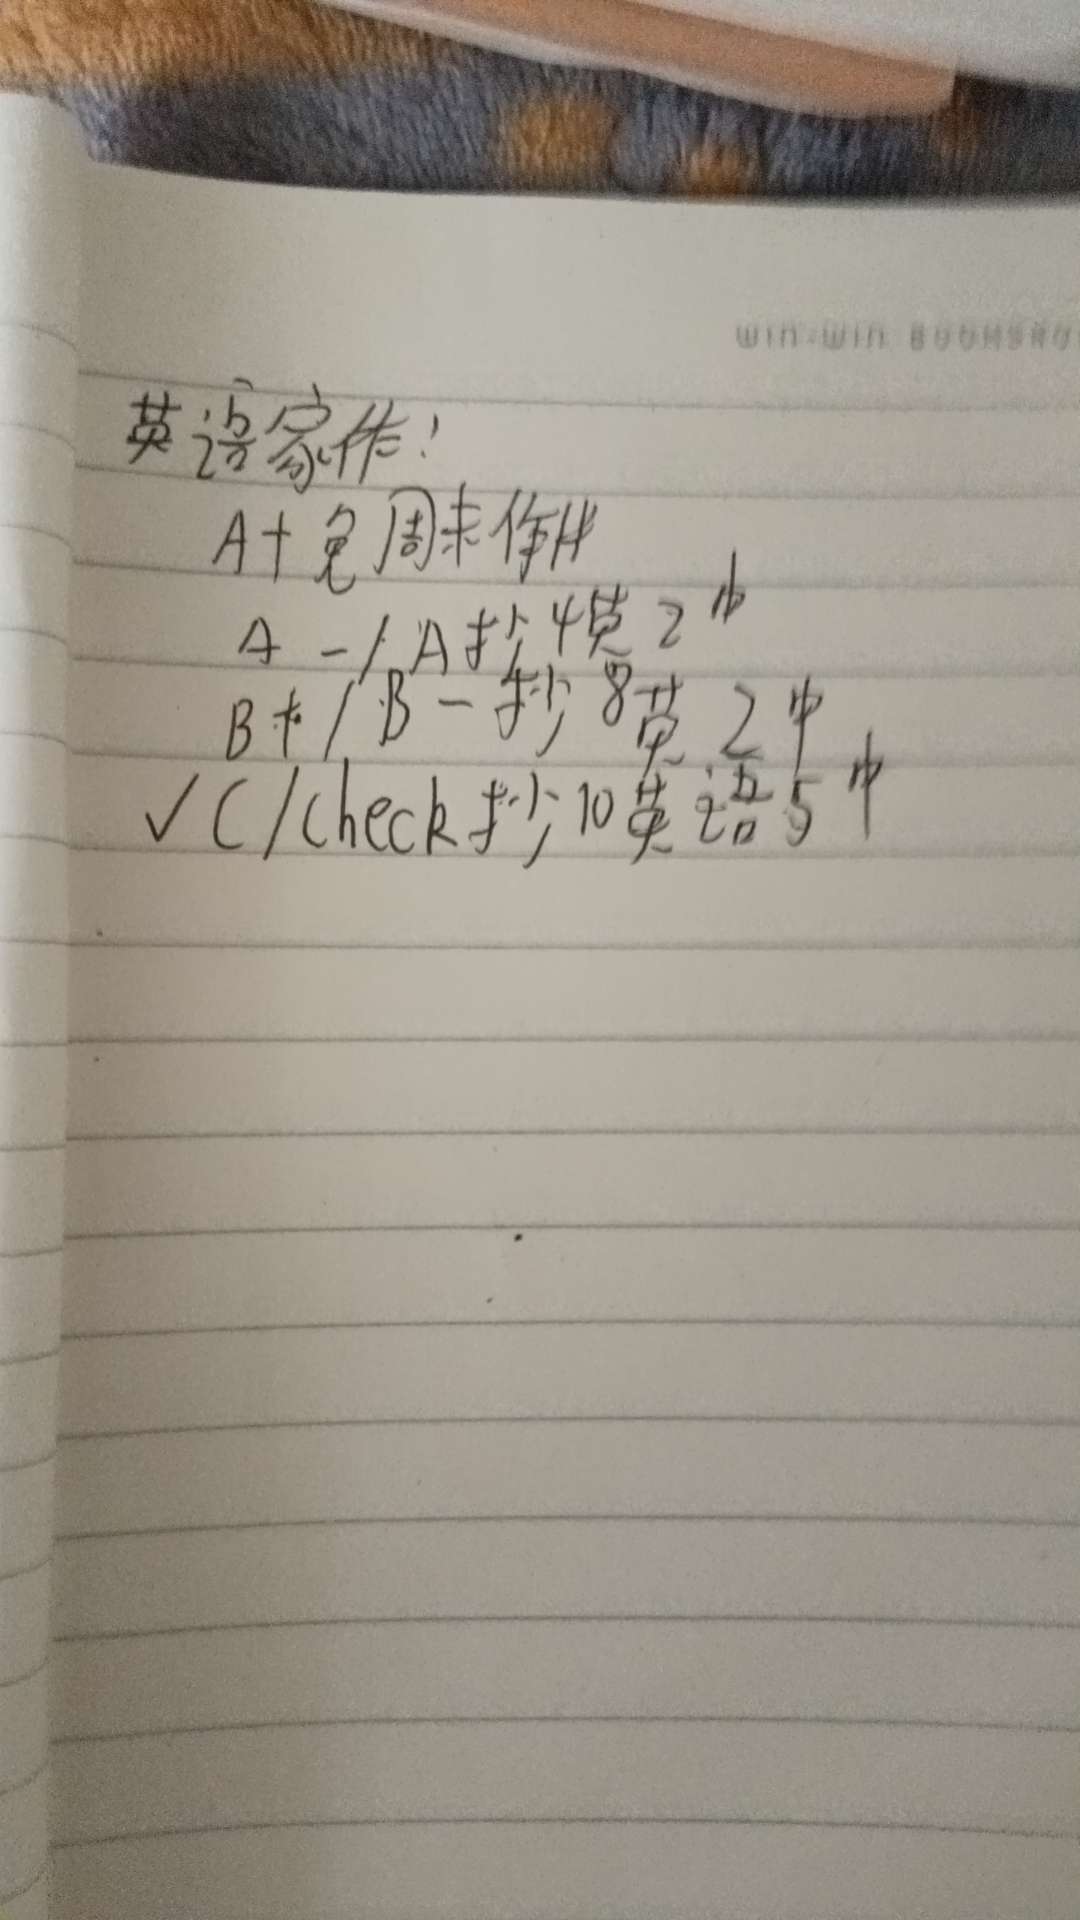 win-win
英语家作:
A+免周末作业
A-/A抄4英2中
B+/B-抄8英2中
✓C/Check抄10英语5中